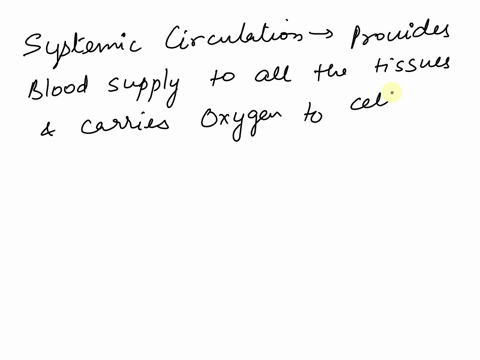 Systemic Circulation → Provides
Blood supply to all the tissues
& carries Oxygen to cel